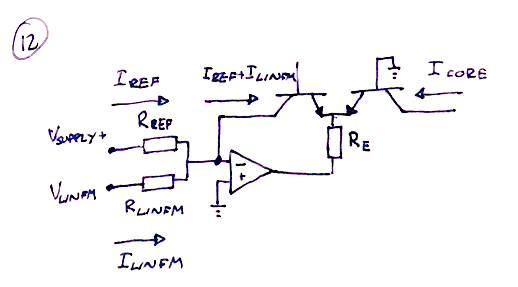 12
I REF
I REF + I LINFM
I CORE
R REF
V SUPPLY +
R E
-
+
V LINFM
R LINFM
I LINFM